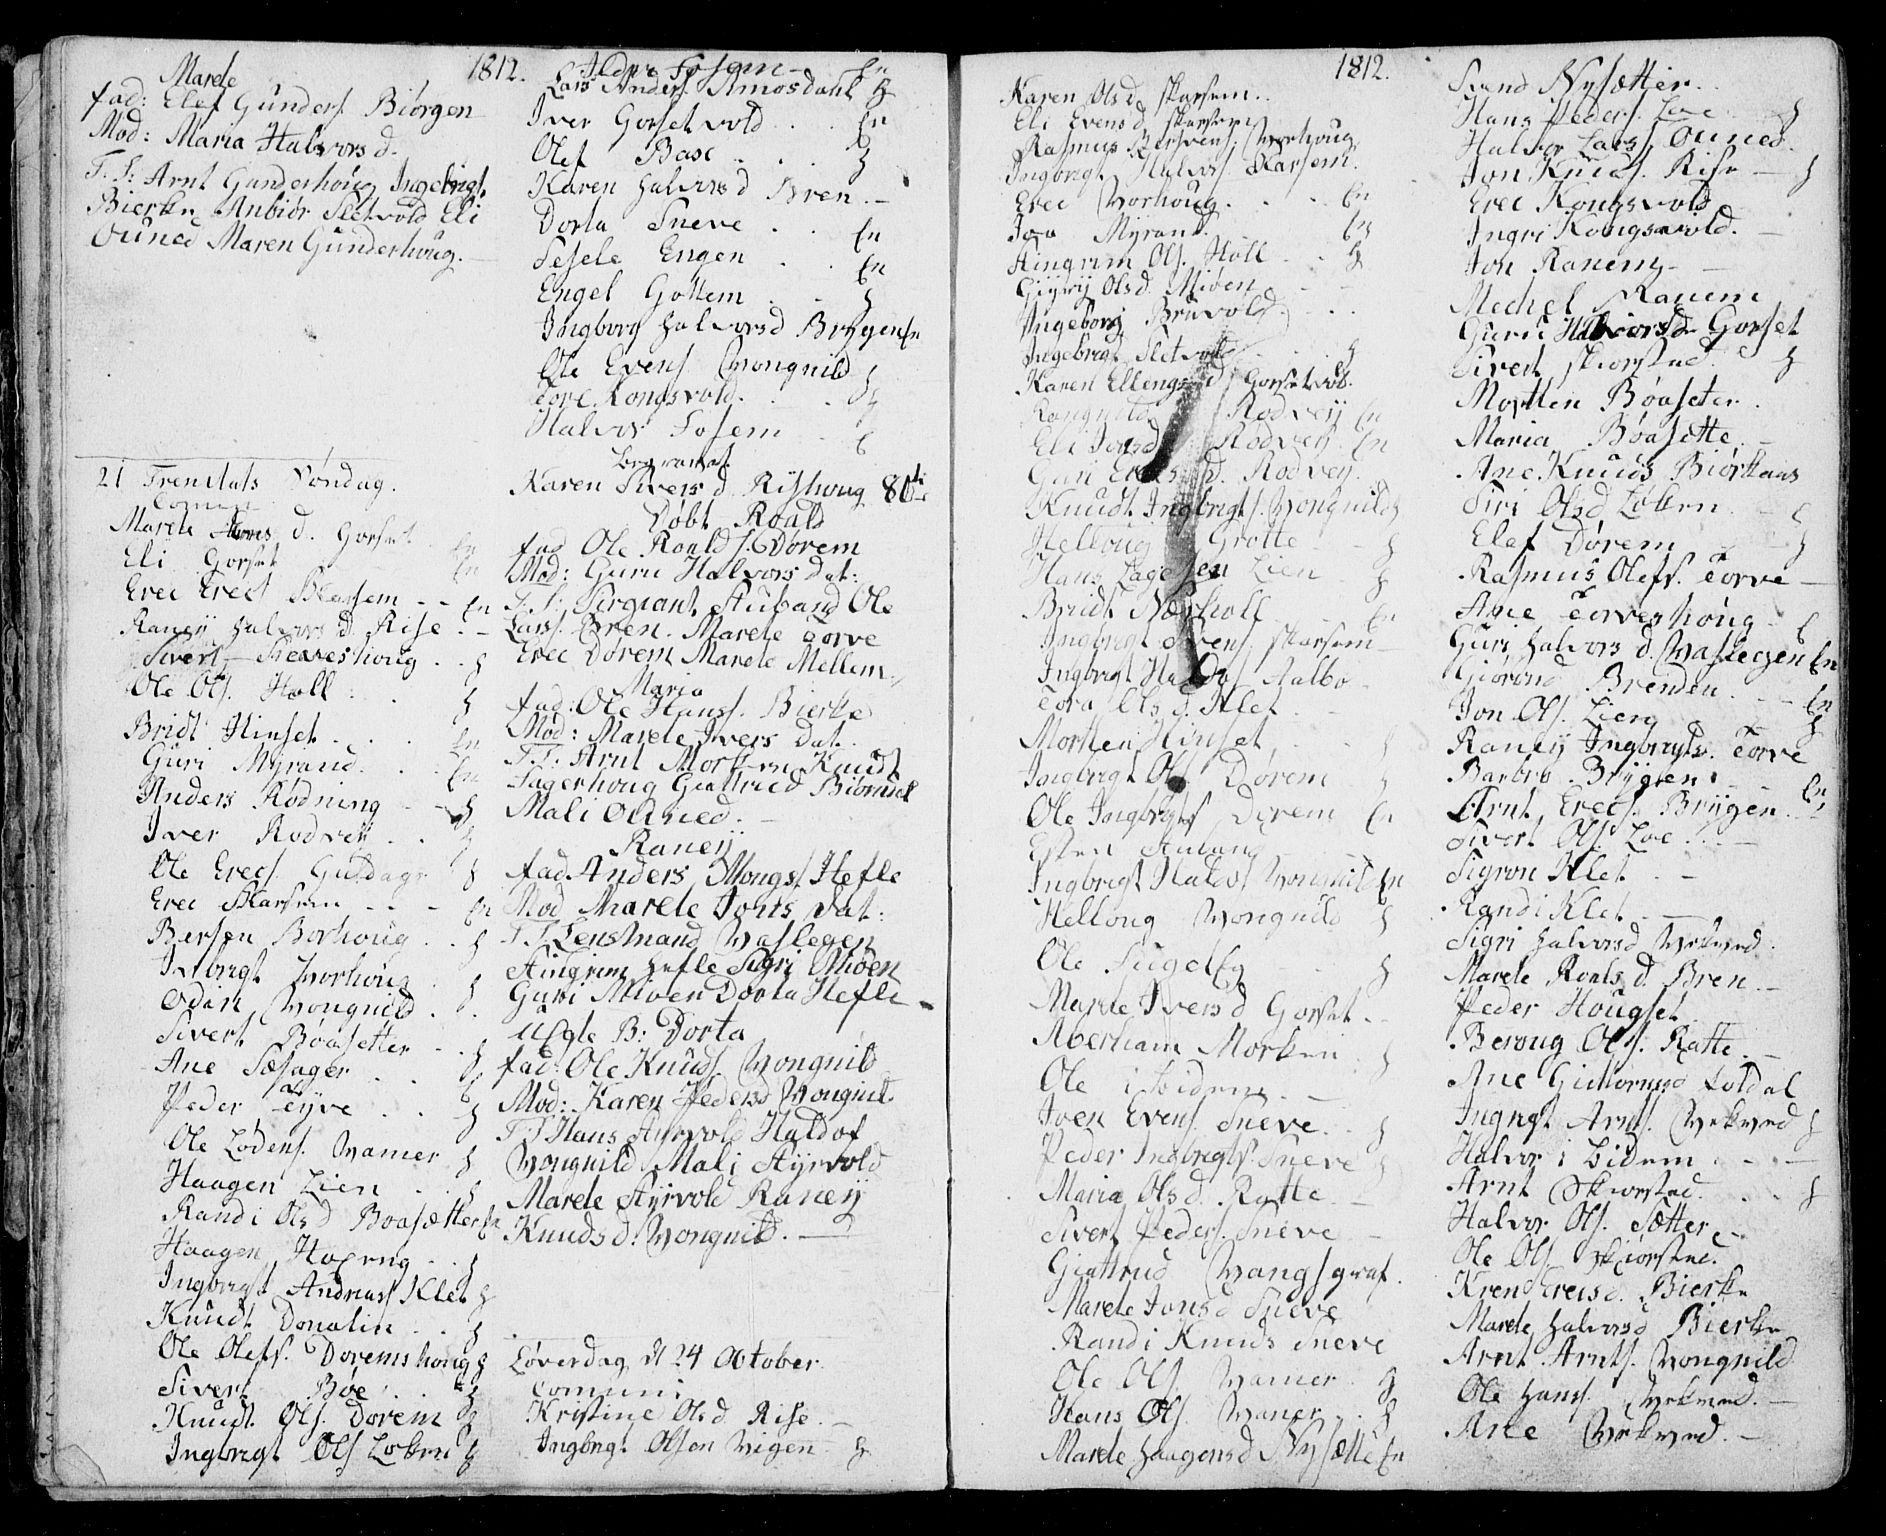 1812.
Marele
fad: Elef Gunders. Biörgen
Mod: Maria Halvors d.
F. S: Arnt Gunderhoug Ingebrigt
Bierke Anbiör Sletvold Eli
Ouned Maren Gunderhoug.
21 Trenitats Söndag.
Marele d. Gorset
Eli Gorset En
Erec Erecs Skarsem -- En
Raney Halvors d. Rise
Sivert Treveshoug
Ole Ols. Holl
Bridt Hinset En
Guri Myrand En
Anders Rödning
Iver Rodvey
Ole Erecs. Guldager
Erec Skarsem En
Bersen Borhoug
Ingbrigt Worhoug
Odin Wongnild
Sivert Böasetter
Ane Sæsager
Peder Teyve
Ole Lodens. Wamer
Haagen Lien
Randi Ols d Boasætter En
Haagen Hoeeng
Ingbrigt Andreas Klet
Knudt Donalin
Ole Olefs. Doremshoug
Sivert Böe
Knudt Ols. Dorem
Ingbrigt Ols Loken
Peder Fosem En
Lars Anders. Amosdahl
Iver Gorsetvold En
Olef Base
Karen Halvors d Bren
Dorta Sneve En
Sesele Engen En
Engel Gottem
Ingborg Halvorsd Brygen En
Ole Evens Wongnild
Tore Kongsvold
Halvor Fosem
Begravet
Karen Sivers d. Rishoug 80
Döbt Roald
fad Ole Roalds. Dörem
Mod: Guru Halvors Dat:
F. S: Sergiant Stuband Ole
Lars. Bren. Marele Torve
Erec Dorem Marele Mellem
Maria
fad: Ole Hans. Bierke
Mod: Marele Ivers Dat
F. S: Arnt Morken Knudt
Fagerhoug Giettrud Biörndal
Mali Ouned.
Raney
fad. Anders Mongs Hefle
Mod Marele Jons Dat:
F. S Lensmand Waslegen
Stingrim Hefle Sigri Miöen
Guri Miöen Dorta Hefle
Uegte B: Dorta
fad: Ole Knuds. Wongnild
Mod: Karen Peders d Wongnild
F. S Hans Styrvold Haldof
Wongnild Mali Styrvold
Marele Styrvold Raney
Knuds d. Wongnild.
Löverdag d 24 October
Comuni
Kristine Ols d Rise
Ingbrigt Olsen Wigen
1812.
Karen Ols d Skarsem
Eli Evens d Skarsem
Rasmus Bersvens. Worhoug
Ingbrigt Halvos. Skarsem.
Erec Worhoug En
Joa Myrand En
Stingrim Ols. Holl
Giyrij Ols d. Miöen
Ingeborg Bruvold
Ingebrigt Sletvold
Karen Ellengs d Gorsetvol.
Rangnilda Rodvey En
Eli Jons d Rodvey En
Guri d. Rodvey
Knudt Ingbrigts. Wongnild
Helloug Grotte
Hans Lagesen Lien
Bridt Nærholl En
Ingbrigt Svens. Skarsem
Ingbrigt Haldos. Aalbo
Tora Ols d. Klet
Morten Hinset
Ingbrigt Ols. Dörem
Ole Ingbrigts Dörem En
Esten Stuland
Ingbrigt Haldos Wongnild En
Helloug Wongnild
Ole
Marie Ivers d Gorset
Aberham Morken
Ole i Lidem
Joen Evens. Sneve
Peder Ingbrigts. Sneve
Maria Ols d. Ratte
Sivert Peders. Sneve
Giettrud Wangsgraf.
Marele Jonsd Sneve
Randi Knuds Sneve
Ole Ols Wamer
Hans Ols Wamer
Marele Haagens d Nysætte En
Svend Nysætter.
Hans Peders. Loe
Halvor Lars. Ouned.
Jon Knuds. Rise
Erec Kongsvold
Ingri Kongsvold.
Jon Raneng
Mechel Ranem
Guru Halvorsd. Gorset
Sivert Skiorstad.
Morten Böasetter
Maria Böasette
Ane Knuds Biörkaas
Siri Olsd Loken
Elef Dörem
Rasmus Olefs. Torve
Ane Torveshoug
Guri Halvors d. Waslegen En
Giörond Brenden En
Jon Ols. Lieng
Raney Ingbrigts. Torve
Barbro Brygen En
Arnt Erecs. Brygen
Sivert Ols. Loe
Sigron Klet
Randi Klet
Sigri Halvors d Wekved.
Marele Roals d. Bren
Peder Hougset
Beroug Ols. Ratte
Ane Guttormsd Loldal
Ingrigt Arnts. Wekved
Halvor i Lidem
Arnt Skiorstad.
Halvor Ols. Sætter
Ole Ols Skiorstad.
Kren Erecs d. Bierke
Marele Halvors d Bierke
Arnt Arnts. Wongnild
Ole Hans. Wekved.
Ane Wekved.